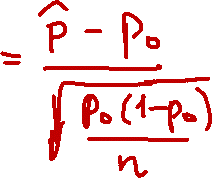 = \frac{\hat{p} - p_0}{\sqrt{\frac{p_0(1-p_0)}{n}}}